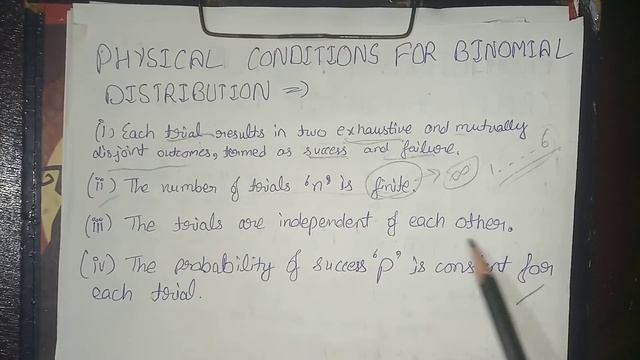 PHYSICAL CONDITIONS FOR BINOMIAL
DISTRIBUTION =>
(i) Each trial results in two exhaustive and mutually
disjoint outcomes, termed as success and failure.
(ii) The number of trials 'n' is finite. → ∞ 1 ...... 6
(iii) The trials are independent of each other.
(iv) The probability of success 'p' is constant for
each trial.